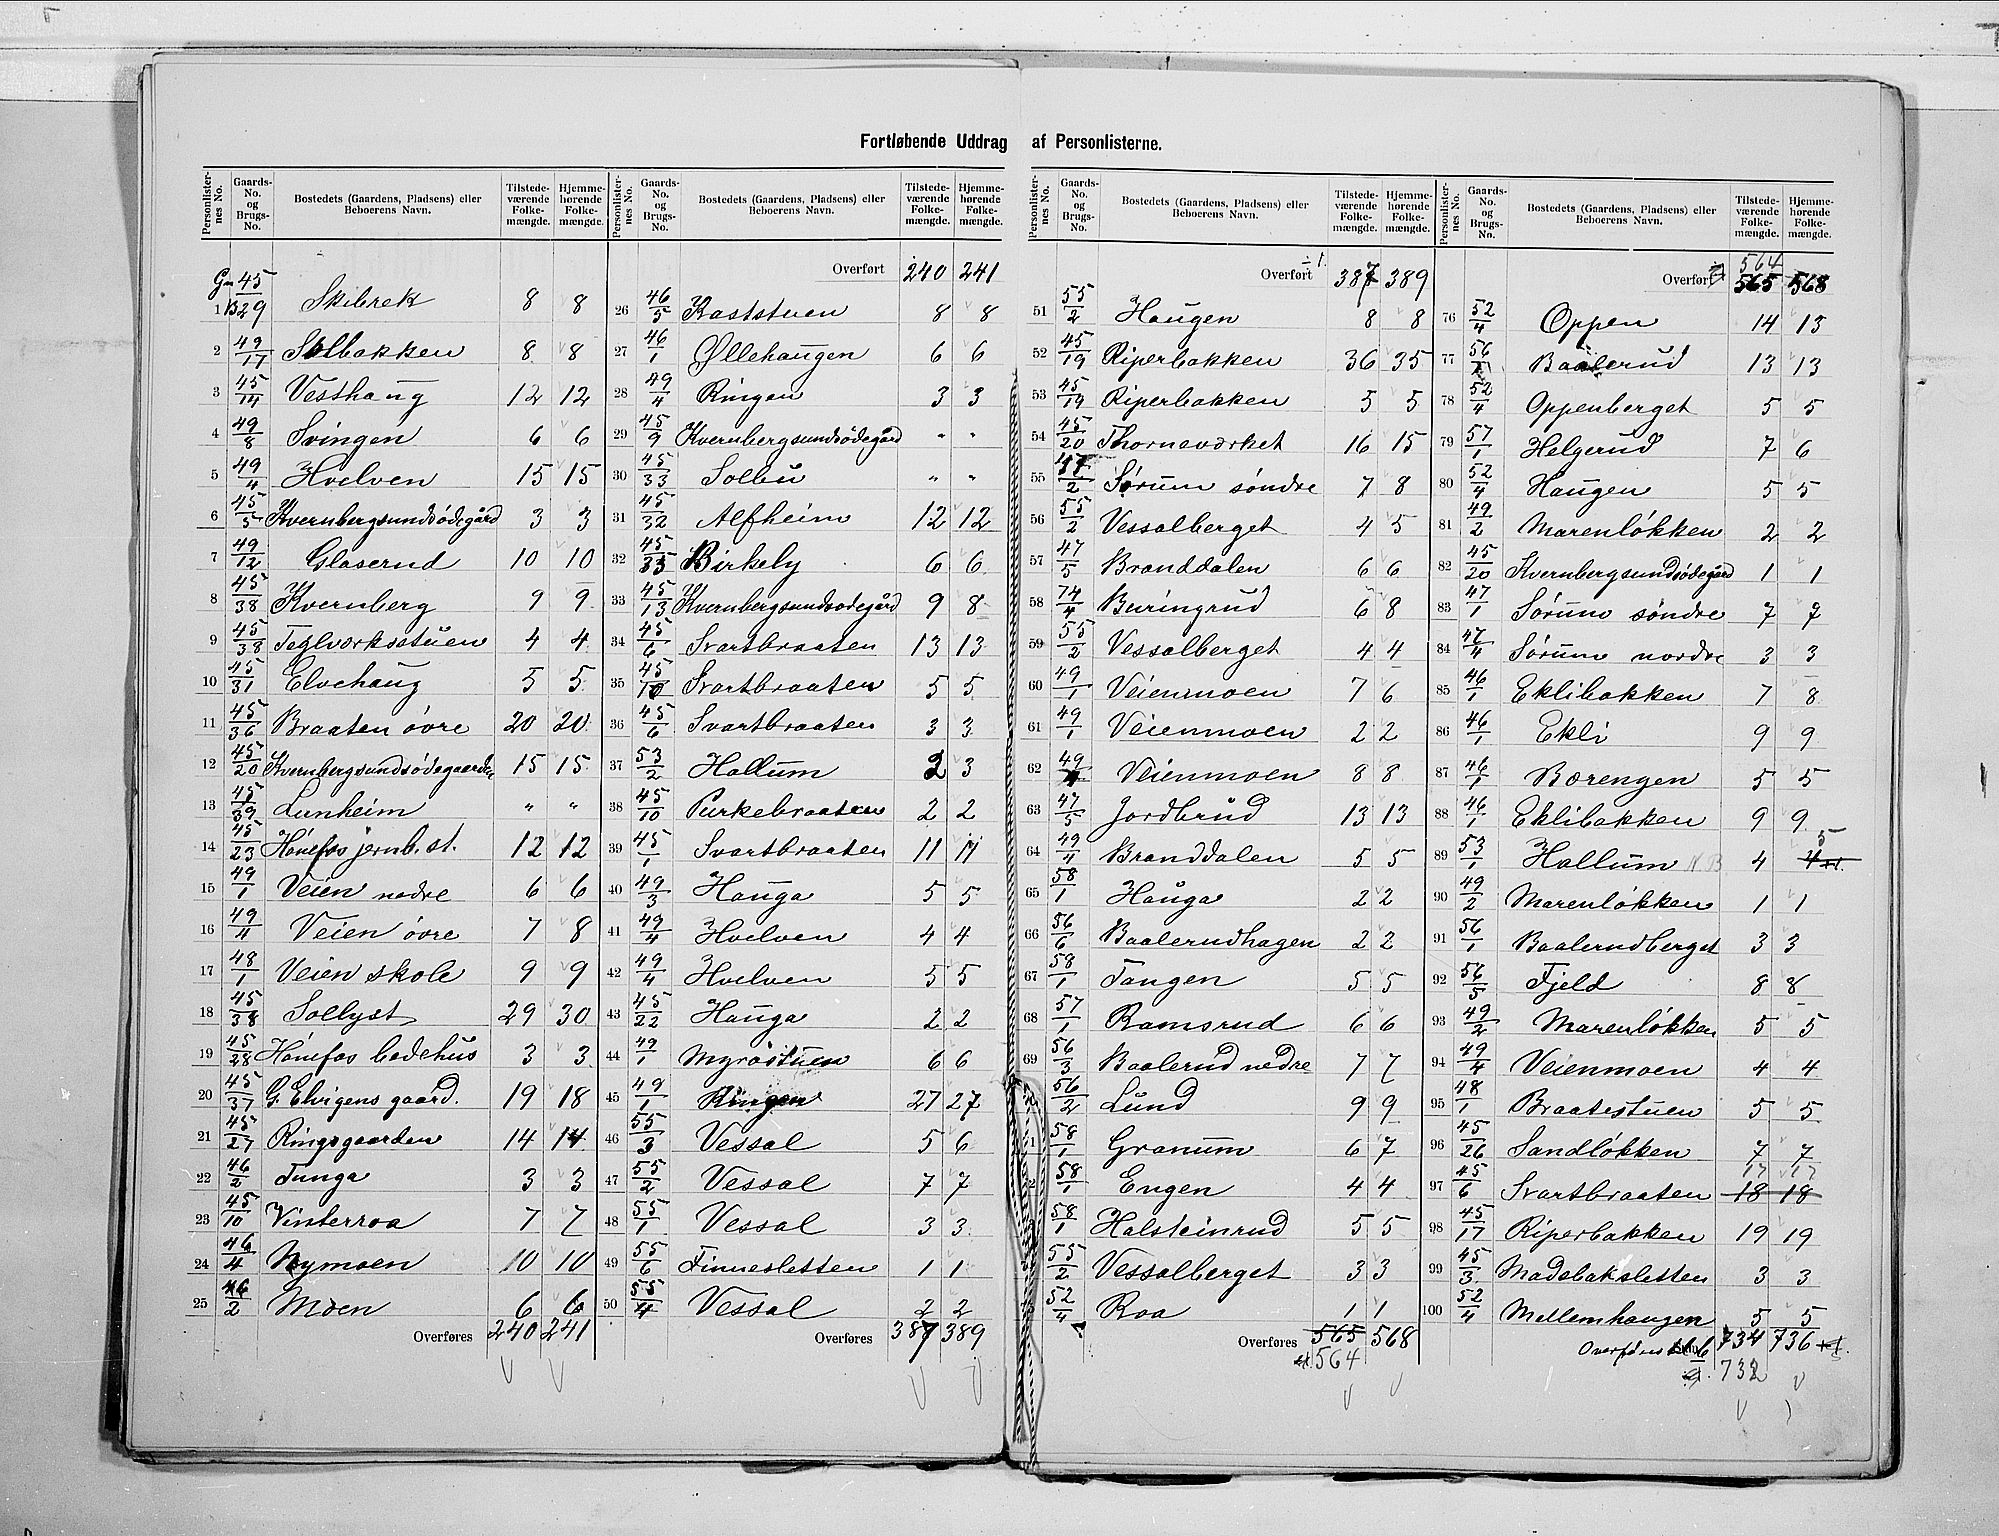 Fortløbende Uddrag af Personlisterne.
Personlisternes No. Gaards-No. og Brugs-No. Bostedets (Gaardens, Pladsens) eller Beboerens Navn. Tilstedeværende Folkemængde. Hjemmehørende Folkemængde.
Gn 45
1 B 29 Skibrek 8 8
2 49/17 Solbakken 8 8
3 45/14 Vesthaug 12 12
4 49/8 Svingen 6 6
5 49/4 Hvelven 15 15
6 45/5 Kvernbergsundsödegård 3 3
7 49/12 Glaserud 10 10
8 45/38 Kvernberg 9 9
9 45/38 Teglværksstuen 4 4
10 45/31 Elvehaug 5 5
11 45/36 Braaten övre 20 20
12 45/20 Kvernbergsundsödegaarden 15 15
13 45/39 Lunheim " "
14 45/23 Hönefos jernb. st. 12 12
15 49/1 Veien nedre 6 6
16 49/4 Veien övre 7 8
17 48/1 Veien skole 9 9
18 45/38 Sollyst 29 30
19 45/28 Hönefos bedehus 3 3
20 45/37 G. Elvigens gaard. 19 18
21 45/27 Ringsgaarden 14 14
22 46/2 Tunga 3 3
23 45/10 Vinterroa 7 7
24 46/4 Nymoen 10 10
25 46/2 Moen 6 6
Overføres 240 241
Personlisternes No. Gaards-No. og Brugs-No. Bostedets (Gaardens, Pladsens) eller Beboerens Navn. Tilstedeværende Folkemængde. Hjemmehørende Folkemængde.
Overført 240 241
26 46/5 Raststuen 8 8
27 46/1 Øllehaugen 6 6
28 49/4 Ringen 3 3
29 45/9 Kvernbergsundsödegård " "
30 45/33 Solbu " "
31 45/32 Alfheim 12 12
32 45/35 Birkely 6 6
33 45/13 Kvernbergsundsodegård 9 8
34 45/6 Svartbraaten 13 13
35 45/10 Svartbraaten 5 5
36 45/6 Svartbraaten 3 3
37 53/2 Hallum 2 3
38 45/10 Purkebraaten 2 2
39 45/1 Svartbraaten 11 11
40 49/3 Hauga 5 5
41 49/4 Hvelven 4 4
42 49/4 Hvelven 5 5
43 45/22 Hauga 2 2
44 49/1 Myrastuen 6 6
45 49/1 Ringen 27 27
46 55/3 Vessal 5 6
47 55/2 Vessal 7 7
48 55/1 Vessal 3 3
49 55/6 Finnesletten 1 1
50 55/4 Vessal 2 2
Overføres 387 389
Personlisternes No. Gaards-No. og Brugs-No. Bostedets (Gaardens, Pladsens) eller Beboerens Navn. Tilstedeværende Folkemængde. Hjemmehørende Folkemængde.
Overført ÷1. 387 389
51 55/2 Haugen 8 8
52 45/19 Riperbakken 36 35
53 45/19 Riperbakken 5 5
54 45/20 Thorneværket 16 15
55 57/2 Sørum söndre 7 8
56 55/2 Vessalberget 4 5
57 47/5 Branddalen 6 6
58 74/4 Buringrud 6 8
59 55/2 Vessalberget 4 4
60 49/1 Veienmoen 7 6
61 49/1 Veienmoen 2 2
62 49/1 Veienmoen 8 8
63 47/5 Jordbrud 13 13
64 49/4 Branddalen 5 5
65 58/1 Hauga 2 2
66 56/6 Baalerudhagen 2 2
67 58/1 Tangen 5 5
68 57/1 Ramsrud 6 6
69 56/3 Baalerud nedre 7 7
56/2 Lund 9 9
1 58/1 Granum 6 7
2 58/1 Engen 4 4
58/1 Halsteinrud 5 5
55/2 Vessalberget 3 3
52/4 Roa 1 1
Overføres 565 568
564
Personlisternes No. Gaards-No. og Brugs-No. Bostedets (Gaardens, Pladsens) eller Beboerens Navn. Tilstedeværende Folkemængde. Hjemmehørende Folkemængde.
564
Overført 565 568
76 52/4 Oppen 14 13
77 56/1 Baalerud 13 13
78 52/4 Oppenberget 5 5
79 57/1 Helgerud 7 6
80 52/4 Haugen 5 5
81 49/2 Marenlökken 2 2
82 45/20 Kvernbergsundsödegård 1 1
83 47/1 Sörum söndre 7 7
84 47/4 Sörum nordre 3 3
85 46/1 Eklibakken 7 8
86 46/1 Ekli 9 9
87 46/1 Bærengen 5 5
88 46/1 Eklibakken 9 9
89 53/1 Hallum NB 4 4 5
90 49/2 Marenlökken 1 1
91 56/1 Baalerudberget 3 3
92 56/5 Fjeld 8 8
93 49/2 Marenlökken 5 5
94 49/4 Veienmoen 4 4
95 48/1 Braatestuen 5 5
96 45/26 Sandlökken 7 7
17 17
97 45/6 Svartbraaten 18 18
98 45/17 Riperbakken 19 19
99 45/3 Madebaksletten 3 3
100 52/4 Mellemhaugen 5 5
Overføres 734 736
732